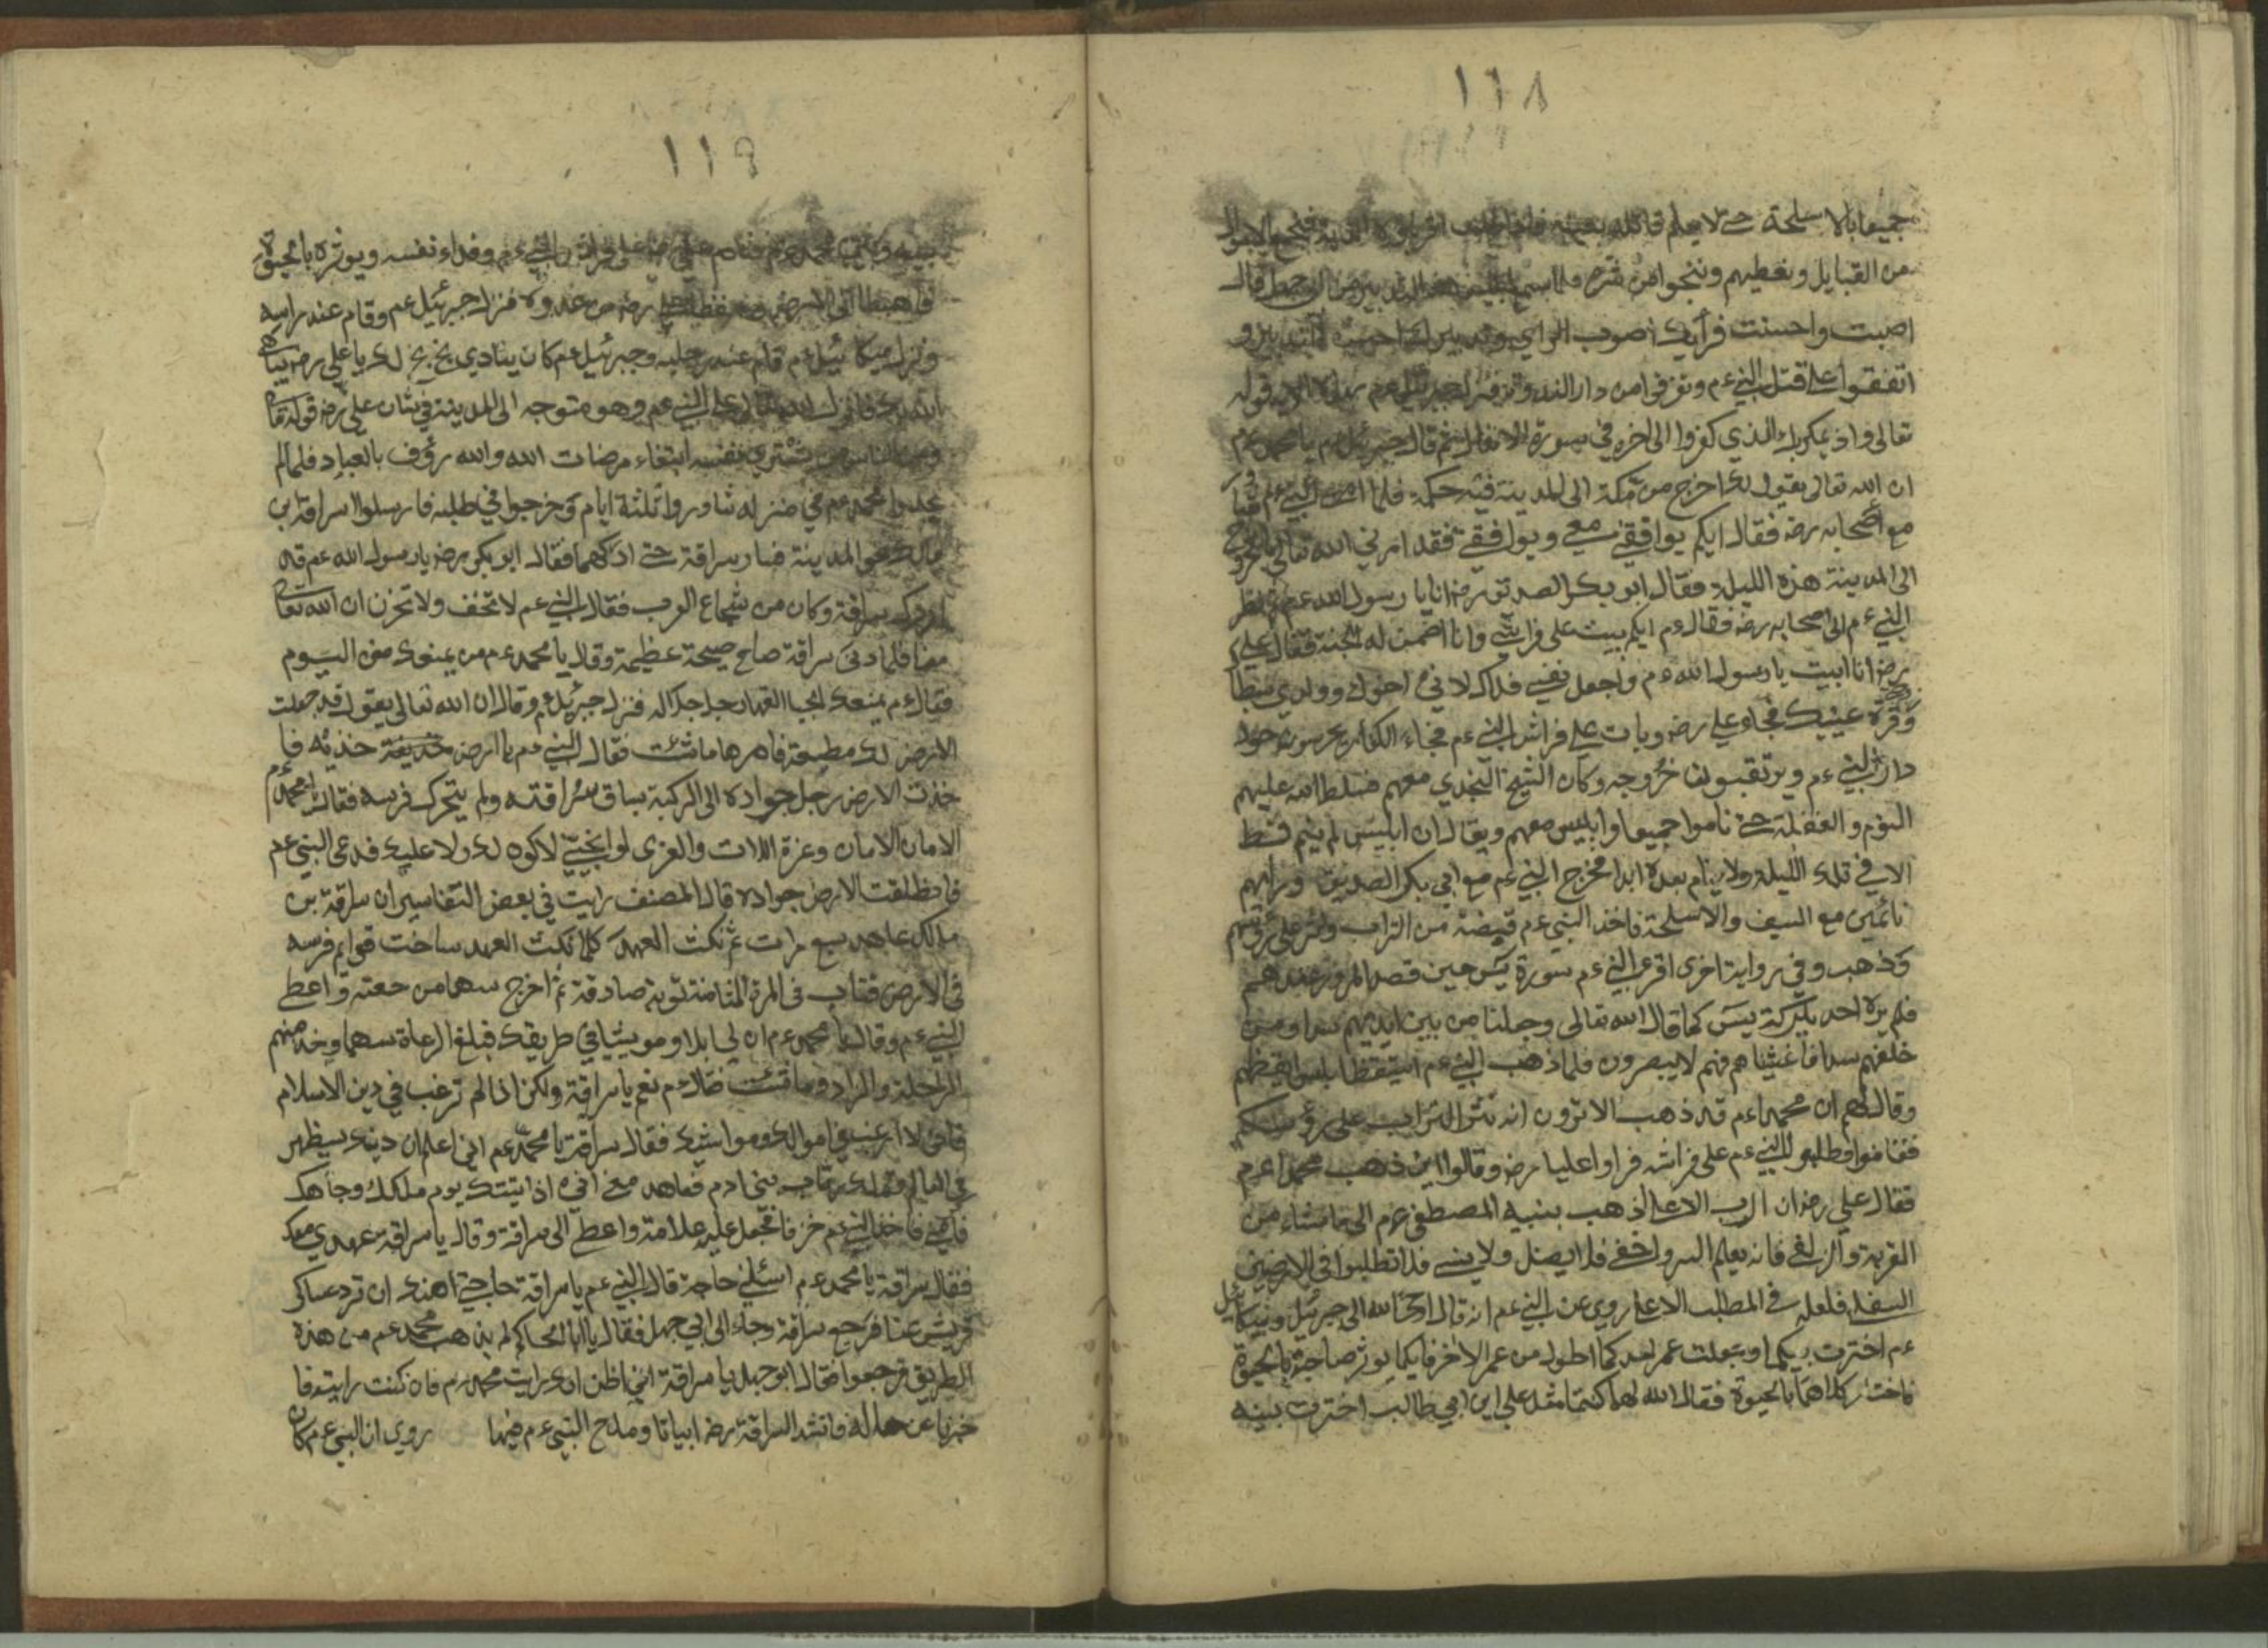 ١١٨
جميعا بالاسلحة حتى لا يعلم قاتله بعينه فاذا طلب اقرباؤه الدية فنجمع الاموال
من القبايل ونعطيهم وننجوا من شره فلما سمع ابليس هذا التدبير من ابي جهل قال
اصبت واحسنت فرأيك اصوب الراي وتدبيرك احسن التدبير و
اتفقوا على قتل النبي ءم وتفرقوا من دار الندوة فنزل جبرئيل عم بهذه الاية قوله
تعالى واذ يمكر بك الذين كفروا الى اخره في سورة الانفال ثم قال جبرئيل عم يا محمد عم
ان الله تعالى يقول لك اخرج من مكة الى المدينة فيه حكمة فلما امسى النبي عم
مع اصحابه رضه فقال ايكم يوافقني معي ويوافقني فقد امرني الله تعالى بالخروج
الى المدينة هذه الليلة فقال ابو بكر الصديق رضه انا يا رسول الله عم فنظر
النبي ءم الى اصحابه رضه فقال ءم ايكم يبيت على فراشي وانا اضمن له الجنة فقال علي
رضه انا ابيت يا رسول الله ءم واجعل نفسي فداك لاني اخوك وولدي سبطا
وقرة عينيك فجاء علي رضه وبات على فراش النبي ءم فجاء الكفار يحرسون حول
دار النبي ءم ويرتقبون خروجه وكان الشيخ النجدي معهم فسلط الله عليهم
النوم والغفلة حتى ناموا جميعا وابليس معهم ويقال ان ابليس لم ينم قط
الا في تلك الليلة ولا ينام بعده ابدا فخرج النبي ءم مع ابي بكر الصديق ورآهم
نائمين مع السيف والاسلحة فاخذ النبي ءم قبضة من التراب ونثر على رؤسهم
وذهب وفي رواية اخرى اقرء النبي ءم سورة يس حين قصد المرور عندهم
فلم يره احد ببركة يس كما قال الله تعالى وجعلنا من بين ايديهم سدا ومن
خلفهم سدا فاغشيناهم فهم لا يبصرون فلما ذهب النبي ءم استيقظ ابليس ايقظهم
وقال لهم ان محمدا ءم قد ذهب الا ترون انه نثر التراب على رؤسكم
فقاموا وطلبوا النبي عم على فراشه فراوا عليا رضه وقالوا اين ذهب محمدا عم
فقال علي رضه ان الرب الاعلى اذهب بنبيه المصطفى عم الى ما شاء من
القربة والزلفى فانه يعلم السر واخفى فلا يضل ولا ينسى فلا تطلبوا في الارضين
السفلى فلعله في المطلب الاعلى روي عن النبي عم انه قال اوحى الله الى جبرئيل وميكائيل
ءم اخترت بينكما وجعلت عمر احدكما اطول من عمر الاخر فايكما يوثر صاحبه بالحيوة
فاختار كلاهما بالحيوة فقال الله لهما كنتما مثل علي ابن ابي طالب اخترت بينه
١١٩
بينه وبين محمد عم فنام علي على فراش النبي ءم وفداء نفسه ويوثره بالحيوة
فاهبطا الى الارض رضه من عدوه فنزل جبرئيل عم وقام عند راسه
ونزل ميكائيل ءم قام عند رجليه وجبرئيل عم كان ينادي بخ بخ لك يا علي رضه
الله بك فانزل الله تعالى على النبي عم وهو متوجه الى المدينة في شان علي رضه قوله تعالى
ومن الناس من يشتري نفسه ابتغاء مرضات الله والله رؤف بالعباد فلما لم
يجدوا محمدا عم في منزله شاوروا ثلثة ايام وخرجوا في طلبه فارسلوا سراقة بن
مالك نحو المدينة فسار سراقة حتى ادركهما فقال ابو بكر رضه يا رسول الله عم قد
ادركه سراقة وكان من شجاع العرب فقال النبي عم لا تخف ولا تحزن ان الله تعالى
معنا فلما دنى سراقة صاح صيحة عظيمة وقال يا محمد ءم من يمنعك منى اليوم
فقال ءم يمنعك الجبار القهار جل جلاله فنزل جبرئيل عم وقال ان الله تعالى يقول قد جعلت
الارض لك مطيعة فامرها ما شئت فقال النبي ءم يا ارض خذيه فا
خذت الارض رجل جواده الى الركبة بساق سراقته ولم يتحرك فرسه فقال يا محمد ءم
الامان الامان وعزة اللات والعزى لو انجيتني لاكون لك ولا عليك فدعى النبي عم
فانطلقت الارض جواده قال المصنف رايت في بعض التفاسير ان سراقة بن
مالك عاهد سبع مرات ثم نكث العهد كلما نكث العهد ساخت قوايم فرسه
في الارض فتاب في المرة الثامنة توبة صادقة ثم اخرج سهما من جعبته واعطى
النبي ءم وقال يا محمد عم ان لي ابلا ومويشيا في طريقك فبلغ الرعاة سهما وخذ منهم
الراحلة والزاد وما شئت فقال ءم نعم يا سراقة ولكن اذا لم ترغب في دين الاسلام
فاني لا ارغب في اموالك ومواشيك فقال سراقة يا محمد عم اني اعلم ان دينك سيظهر
في العالم وتملك رقاب بني ادم فعاهد معي اني اذا اتيتك يوم ملكك وجاهك
فاخذ النبي عم خزفا فجعل عليه علامة واعطى الى سراقة وقال يا سراقة عهدي معك
فقال سراقة يا محمد عم اسئلني حاجة قال النبي عم يا سراقة حاجتي اهذه ان ترد عساكر
قريش عنا فرجع سراقة وجاء الى ابي جهل فقال يا ابا الحاكم لم يذهب محمد عم من هذه
الطريق فرجعوا فقال ابو جهل يا سراقة اني اظن انك رايت محمد ءم فان كنت رايته فا
خبرنا عن حاله فانشد السراقة رضه ابياتا ومدح النبي ءم فيها روي ان النبي ءم كان